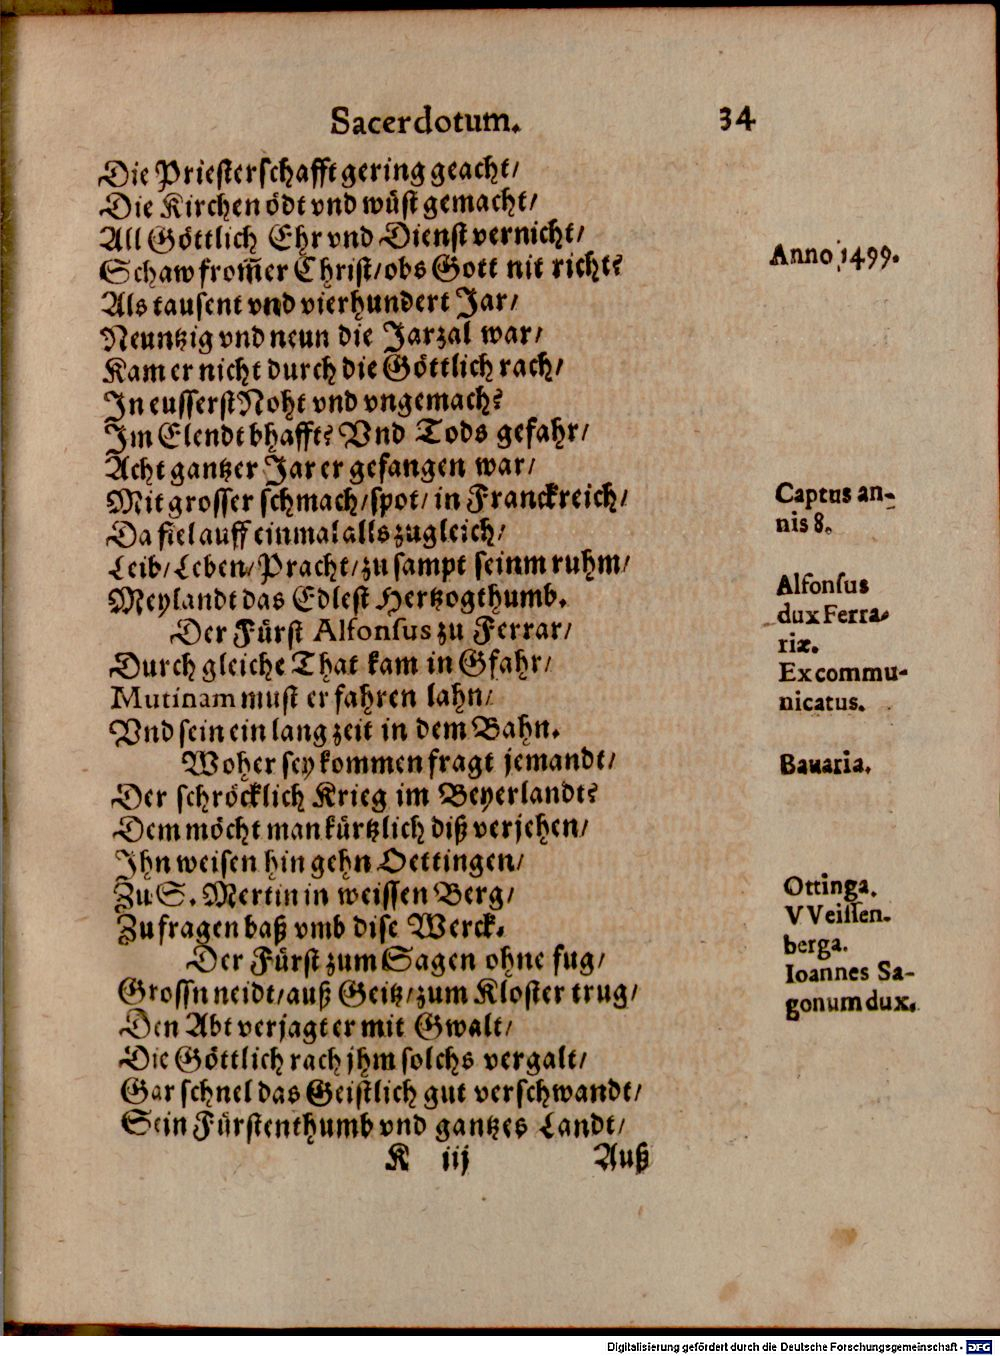 Sacerdotum. 34
Die Priesterschafft gering geacht/
Die Kirchen ödt vnd wüst gemacht/
All Göttlich Ehr vnd Dienst vernicht/
Schaw from̃er Christ/ obs Gott nit richt?
Anno 1499.
Als tausent vnd vierhundert Jar/
Neuntzig vnd neun die Jarzal war/
Kam er nicht durch die Göttlich rach/
In eusserst Noht vnd vngemach?
Im Elendt bhafft? Vnd Tods gefahr/
Acht gantzer Jar er gefangen war/
Mit grosser schmach/ spot/ in Franckreich/
Captus an-
nis 8.
Da fiel auff einmal alls zugleich/
Leib/ Leben/ Pracht/ zu sampt seinm ruhm/
Meylandt das Edlest Hertzogthumb.
Der Fürst Alfonsus zu Ferrar/
Durch gleiche That kam in Gfahr/
Mutinam must er fahren lahn/
Vnd sein ein lang zeit in dem Bahn.
Alfonsus
dux Ferra-
riæ.
Excommu-
nicatus.
Woher sey kommen fragt jemandt/
Bauaria.
Der schröcklich Krieg im Beyerlandt?
Dem möcht man kürtzlich diß verjehen/
Ihn weisen hin gehn Oettingen/
Zu S. Mertin in weissen Berg/
Zu fragen baß vmb dise Werck.
Ottinga.
VVeissen-
berga.
Der Fürst zum Sagen ohne fug/
Grossn neidt/ auß Geitz/ zum Kloster trug/
Ioannes Sa-
gonum dux.
Den Abt verjagt er mit Gwalt/
Die Göttlich rach jhm solchs vergalt/
Gar schnel das Geistlich gut verschwandt/
Sein Fürstenthumb vnd gantzes Landt/
K iij Auß
Digitalisierung gefördert durch die Deutsche Forschungsgemeinschaft - DFG